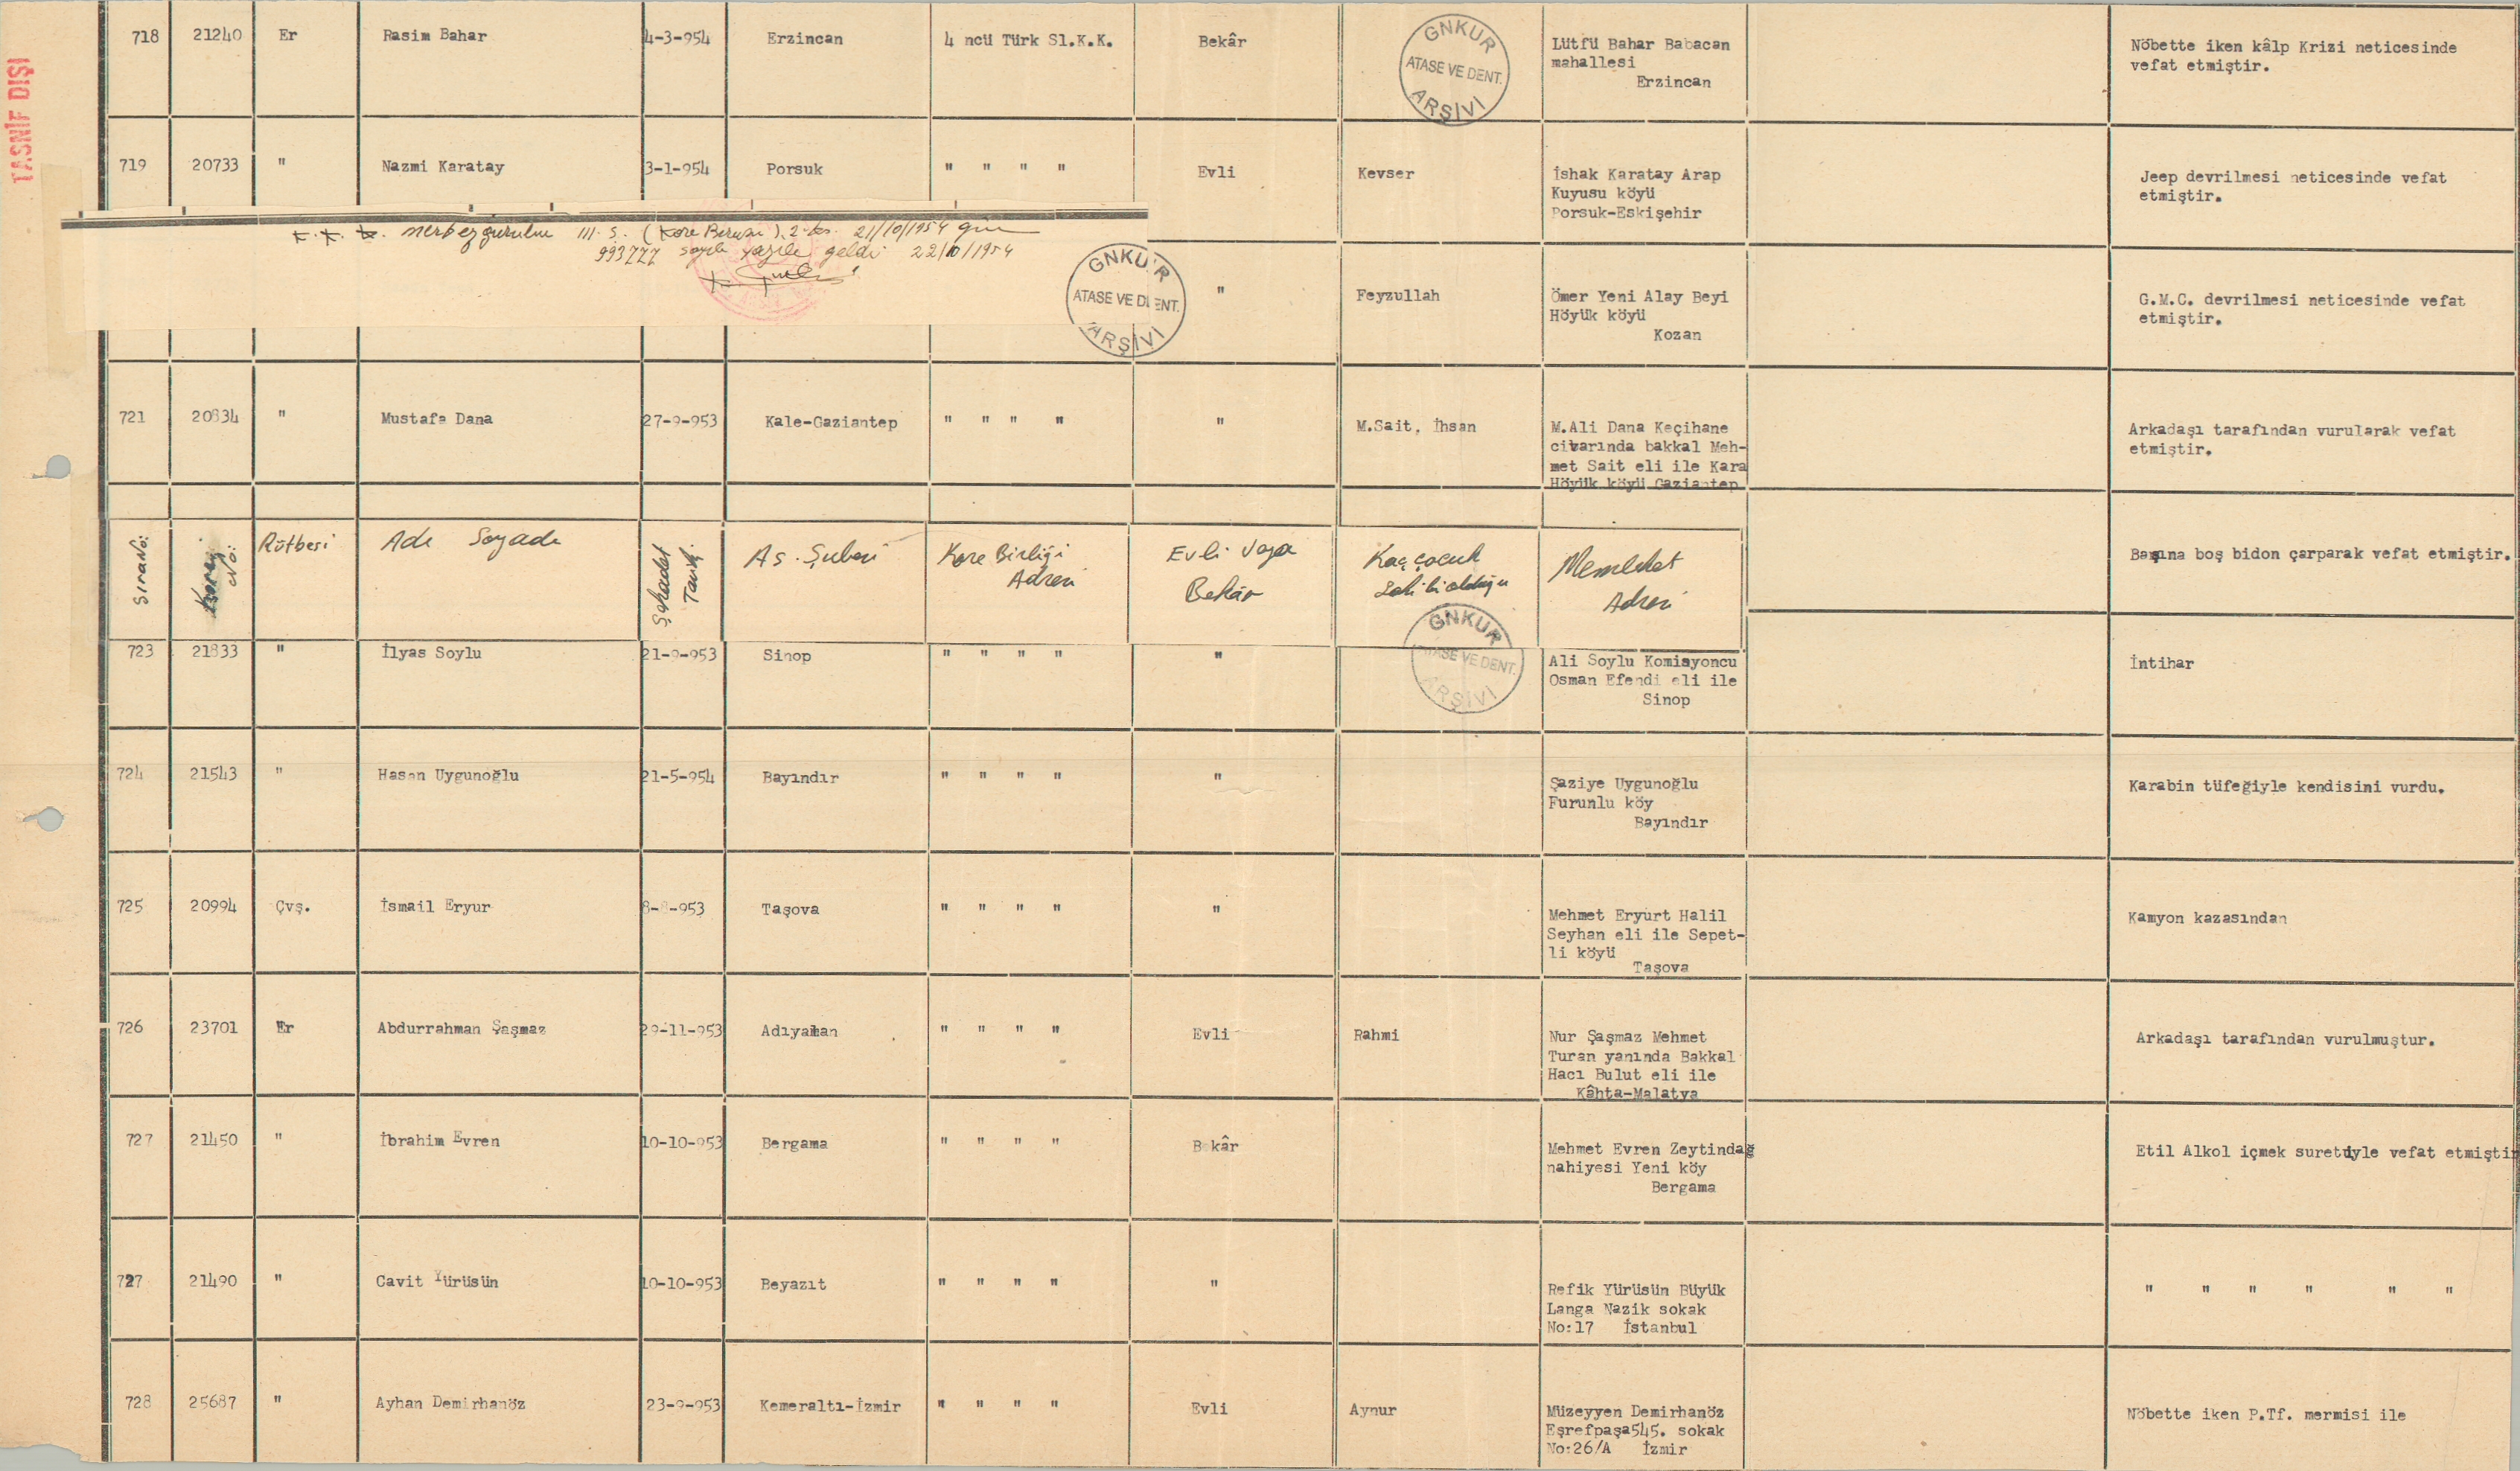 TASNİF DIŞI
718 21240 Er Rasim Bahar 4-3-954 Erzincan 4 ncü Türk Sl.K.K. Bekâr
GNKUR
ATASE VE DENT.
ARŞİVİ
Lütfü Bahar Babacan
mahallesi
Erzincan
Nöbette iken kâlp Krizi neticesinde
vefat etmiştir.
719 20733 " Nazmi Karatay 3-1-954 Porsuk " " " " Evli Kevser
İshak Karatay Arap
Kuyusu köyü
Porsuk-Eskişehir
Jeep devrilmesi neticesinde vefat
etmiştir.
III. S. (Kore Bürosu). 2. 21/10/1954 gün
993777 sayılı yazile geldi 22/10/1954
GNKUR
ATASE VE DENT.
ARŞİVİ
" Feyzullah
Ömer Yeni Alay Beyi
Höyük köyü
Kozan
G.M.C. devrilmesi neticesinde vefat
etmiştir.
721 20834 " Mustafa Dana 27-9-953 Kale-Gaziantep " " " " " M.Sait, İhsan
M.Ali Dana Keçihane
civarında bakkal Meh-
met Sait eli ile Kara
Höyük köyü Gaziantep
Arkadaşı tarafından vurularak vefat
etmiştir.
Sıra No: No: Rütbesi Adı Soyadı Şehadet Tarihi As. Şubesi Kore Birliği Adresi Evli veya Bekâr Kaç çocuk sahibi olduğu Memleket Adresi
Başına boş bidon çarparak vefat etmiştir.
GNKUR
ATASE VE DENT.
ARŞİVİ
723 21833 " İlyas Soylu 21-9-953 Sinop " " " " "
Ali Soylu Komisyoncu
Osman Efendi eli ile
Sinop
İntihar
724 21543 " Hasan Uygunoğlu 21-5-954 Bayındır " " " " "
Şaziye Uygunoğlu
Furunlu köy
Bayındır
Karabin tüfeğiyle kendisini vurdu.
725 20994 Çvş. İsmail Eryur 8-8-953 Taşova " " " " "
Mehmet Eryurt Halil
Seyhan eli ile Sepet-
li köyü
Taşova
Kamyon kazasından
726 23701 Er Abdurrahman Şaşmaz 29-11-953 Adıyaman " " " " Evli Rahmi
Nur Şaşmaz Mehmet
Turan yanında Bakkal
Hacı Bulut eli ile
Kâhta-Malatya
Arkadaşı tarafından vurulmuştur.
727 21450 " İbrahim Evren 10-10-953 Bergama " " " " Bekâr
Mehmet Evren Zeytindağ
nahiyesi Yeni köy
Bergama
Etil Alkol içmek suretiyle vefat etmiştir
727 21490 " Cavit Yürüsün 10-10-953 Beyazıt " " " " "
Refik Yürüsün Büyük
Langa Nazik sokak
No:17 İstanbul
" " " " " "
728 25687 " Ayhan Demirhanöz 23-9-953 Kemeraltı-İzmir " " " " Evli Aynur
Müzeyyen Demirhanöz
Eşrefpaşa545. sokak
No:26/A İzmir
Nöbette iken P.Tf. mermisi ile